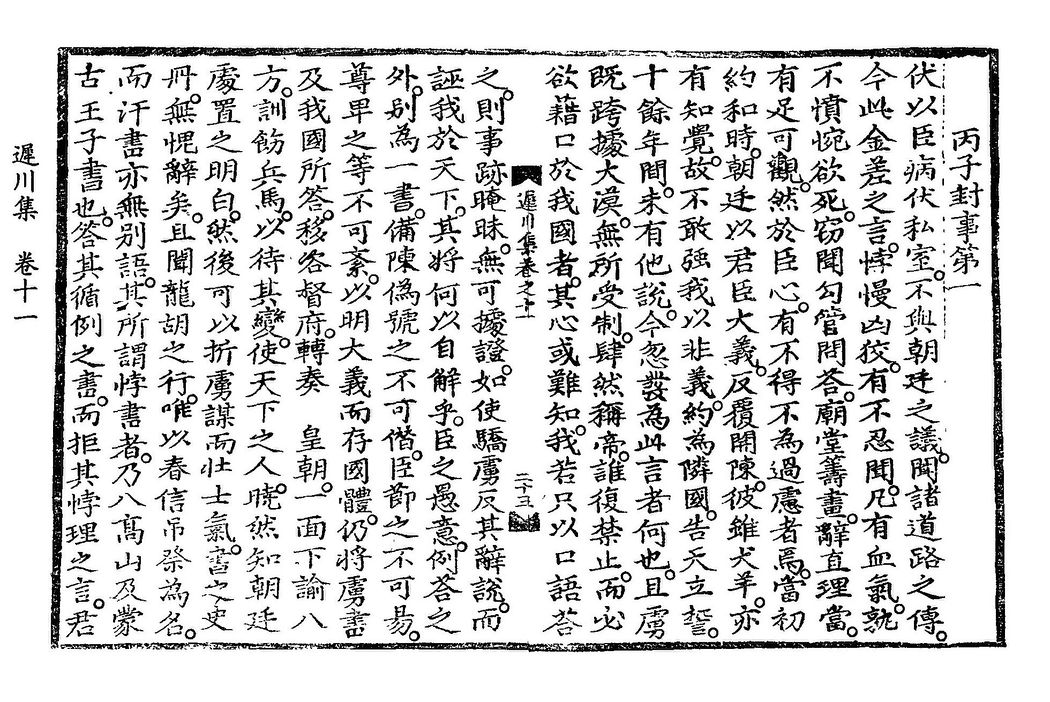 丙子封事第一
伏以臣病伏私室。不與朝廷之議。聞諸道路之傳。
今此金差之言。悖慢凶狡。有不忍聞。凡有血氣。孰
不憤惋欲死。窃聞勾管問答。廟堂籌畫。辭直理當。
有足可觀。然於臣心。有不得不為過慮者焉。當初
約和時。朝廷以君臣大義。反覆開陳。彼雖犬羊。亦
有知覺。故不敢強我以非義。約為隣國。告天立誓。
十餘年間。未有他說。今忽發為此言者何也。且虜
既跨據大漠。無所受制。肆然稱帝。誰復禁止。而必
欲藉口於我國者。其心或難知。我若只以口語答
遲川集卷之十一
二十五
之。則事跡晻昧。無可據證。如使驕虜反其辭說。而
誣我於天下。其将何以自解乎。臣之愚意。例答之
外。别為一書。備陳偽號之不可僭。臣節之不可易。
尊卑之等不可紊。以明大義而存國體。仍将虜書
及我國所答。移咨督府。轉奏　皇朝。一面下諭八
方。訓飭兵馬。以待其變。使天下之人。曉然知朝廷
處置之明白。然後可以折虜謀而壮士氣。書之史
冊。無愧辭矣。且聞龍胡之行。唯以春信吊祭為名。
而汗書亦無别語。其所謂悖書者。乃八高山及蒙
古王子書也。答其循例之書。而拒其悖理之言。君
遲川集　卷十一